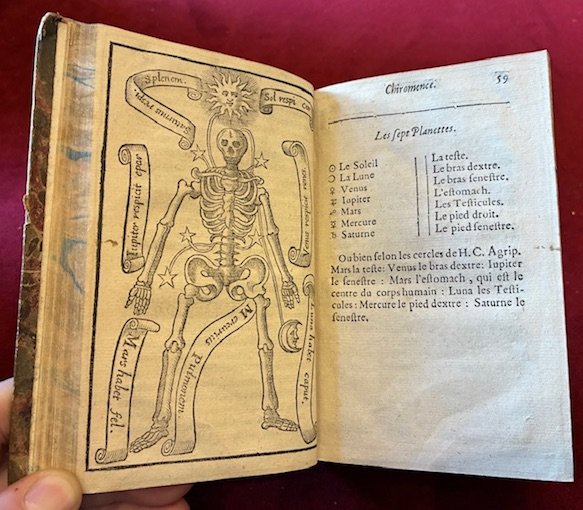 Splenem.
Saturnus respi.
Sol respi. Cor
Iupiter respicit epar
Venus
Mercurius Pulmonem.
Luna habet caput.
Mars habet fel.
Chiromence. 59
Les ſept Planettes.
☉ Le Soleil La teſte.
☽ La Lune Le bras dextre.
♀ Venus Le bras ſeneſtre.
♃ Iupiter L'eſtomach.
♂ Mars Les Teſticules.
☿ Mercure Le pied droit.
♄ Saturne Le pied ſeneſtre.
Ou bien ſelon les cercles de H. C. Agrip.
Mars la teſte: Venus le bras dextre: Iupiter
le ſeneſtre : Mars l'eſtomach, qui est le
centre du corps humain : Luna les Teſti-
cules : Mercure le pied dextre : Saturne le
ſeneſtre.